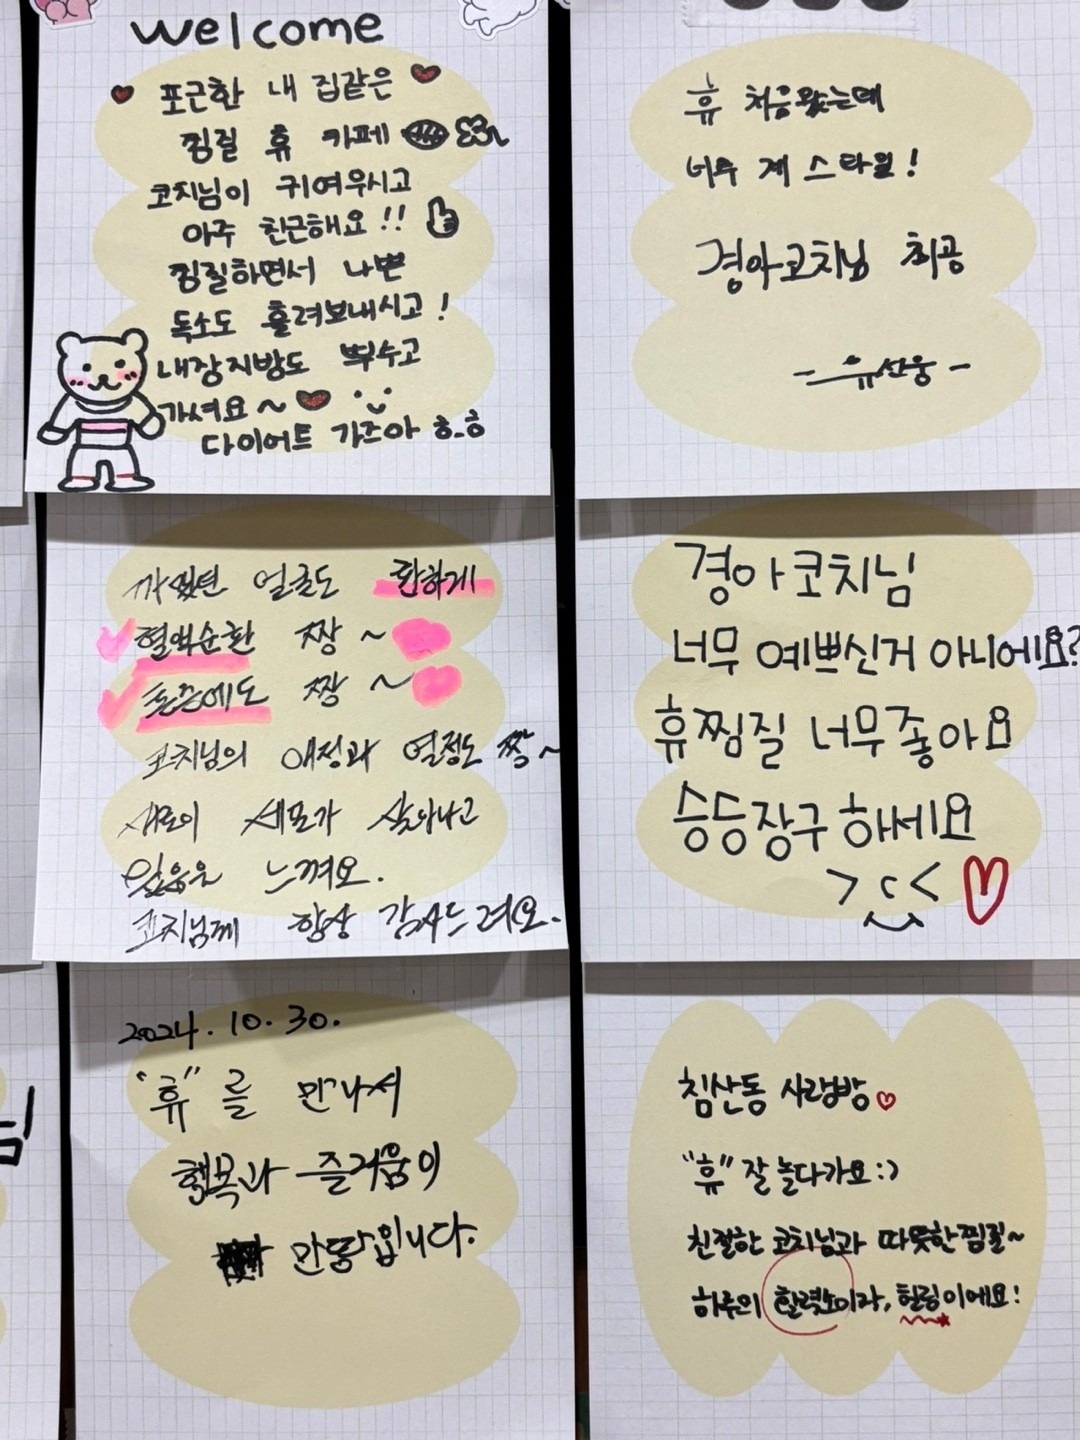 welcome
포근한 내 집같은
찜질 휴 카페
코치님이 귀여우시고
아주 친근해요!!
찜질하면서 나쁜
독소도 흘려보내시고!
내장지방도 뿌수고
가셔요~
다이어트 가즈아 ㅎ_ㅎ
휴 처음왔는데
너무 제 스타일!
경아코치님 최공
- 유선웅 -
까맸던 얼굴도 환하게
혈액순환 짱~
코치님의 애정과 열정도 짱~
새로이 세포가 살아나고
있음을 느껴요.
코치님께 항상 감사드려요.
경아코치님
너무 예쁘신거 아니에요?
휴찜질 너무좋아요
승승장구 하세요
2024.10.30.
"휴"를 만나서
행복과 즐거움이
만땅입니다.
침산동 사랑방
"휴" 잘 놀다가요:)
친절한 코치님과 따뜻한찜질~
하루의 활력소이자, 힐링이에요!